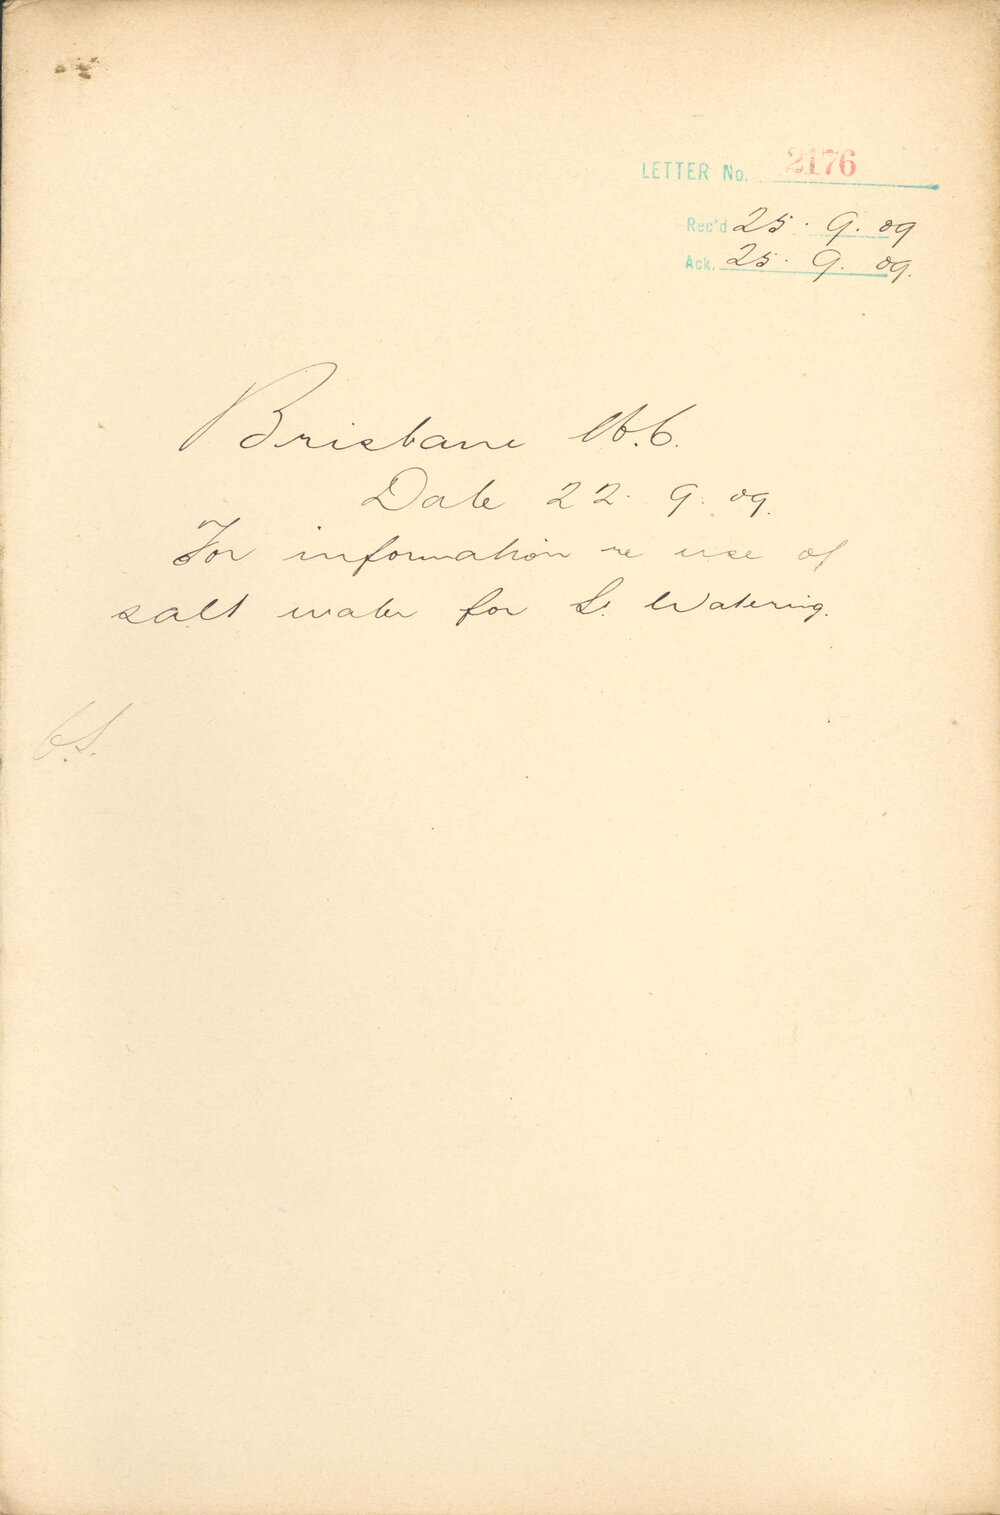 LETTER No. 2176
Rec'd 25. 9. 09
Ack. 25. 9. 09.
Brisbane M.C.
Date 22. 9. 09.
For information re use of
salt water for S. Watering.
C.S.